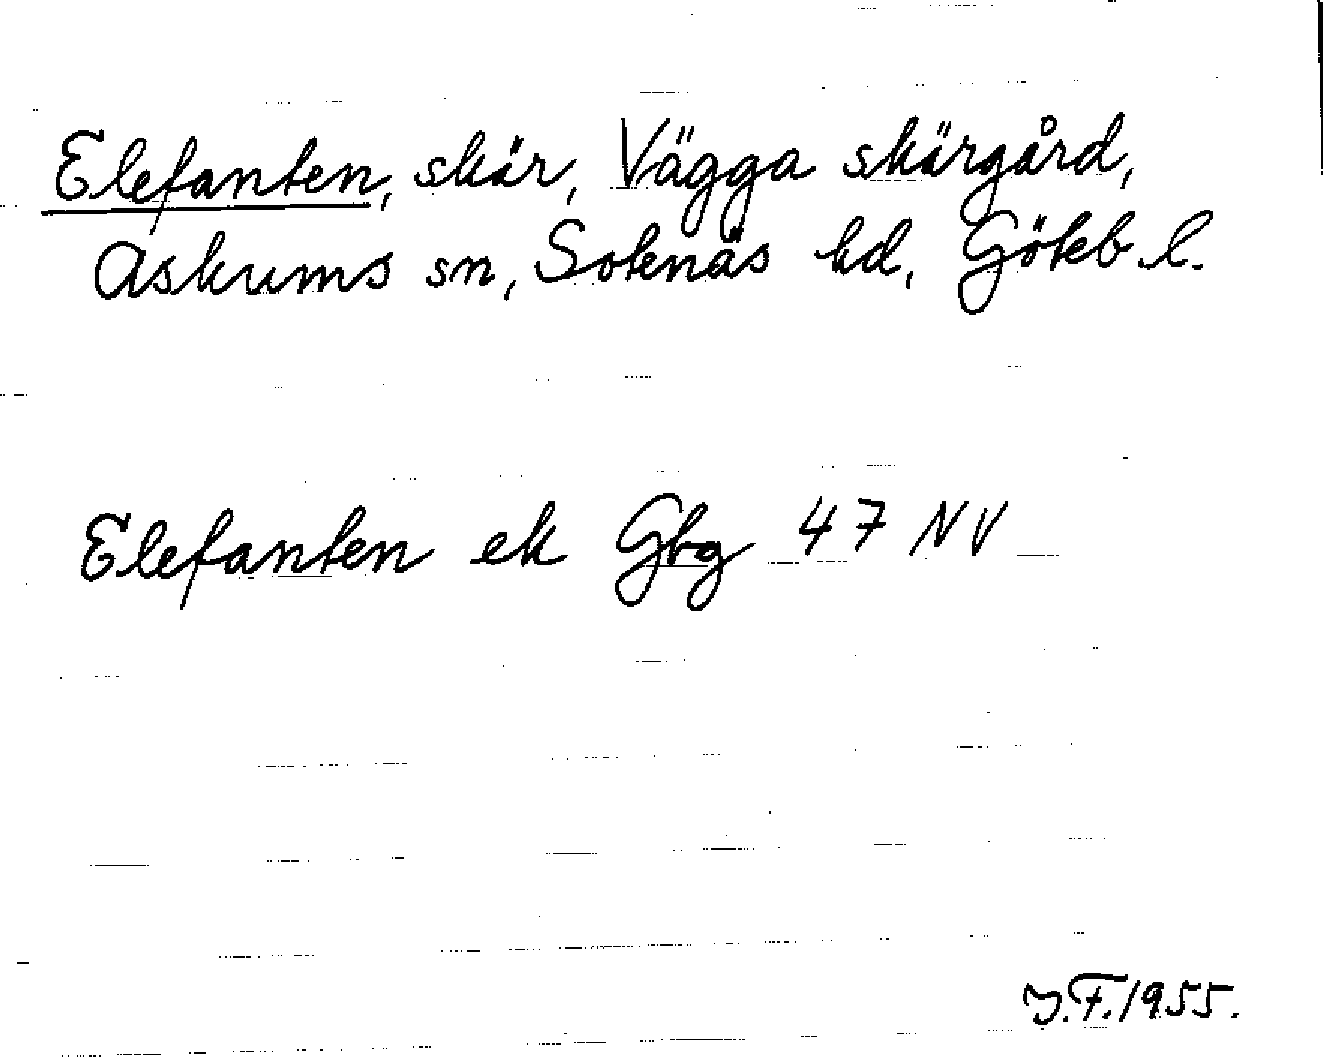 Elefanten, skär, Vägga skärgård,
Askums sn, Sotenäs hd, Götebl.
Elefanten ek Gbg 47 NV
J.F. 1955.